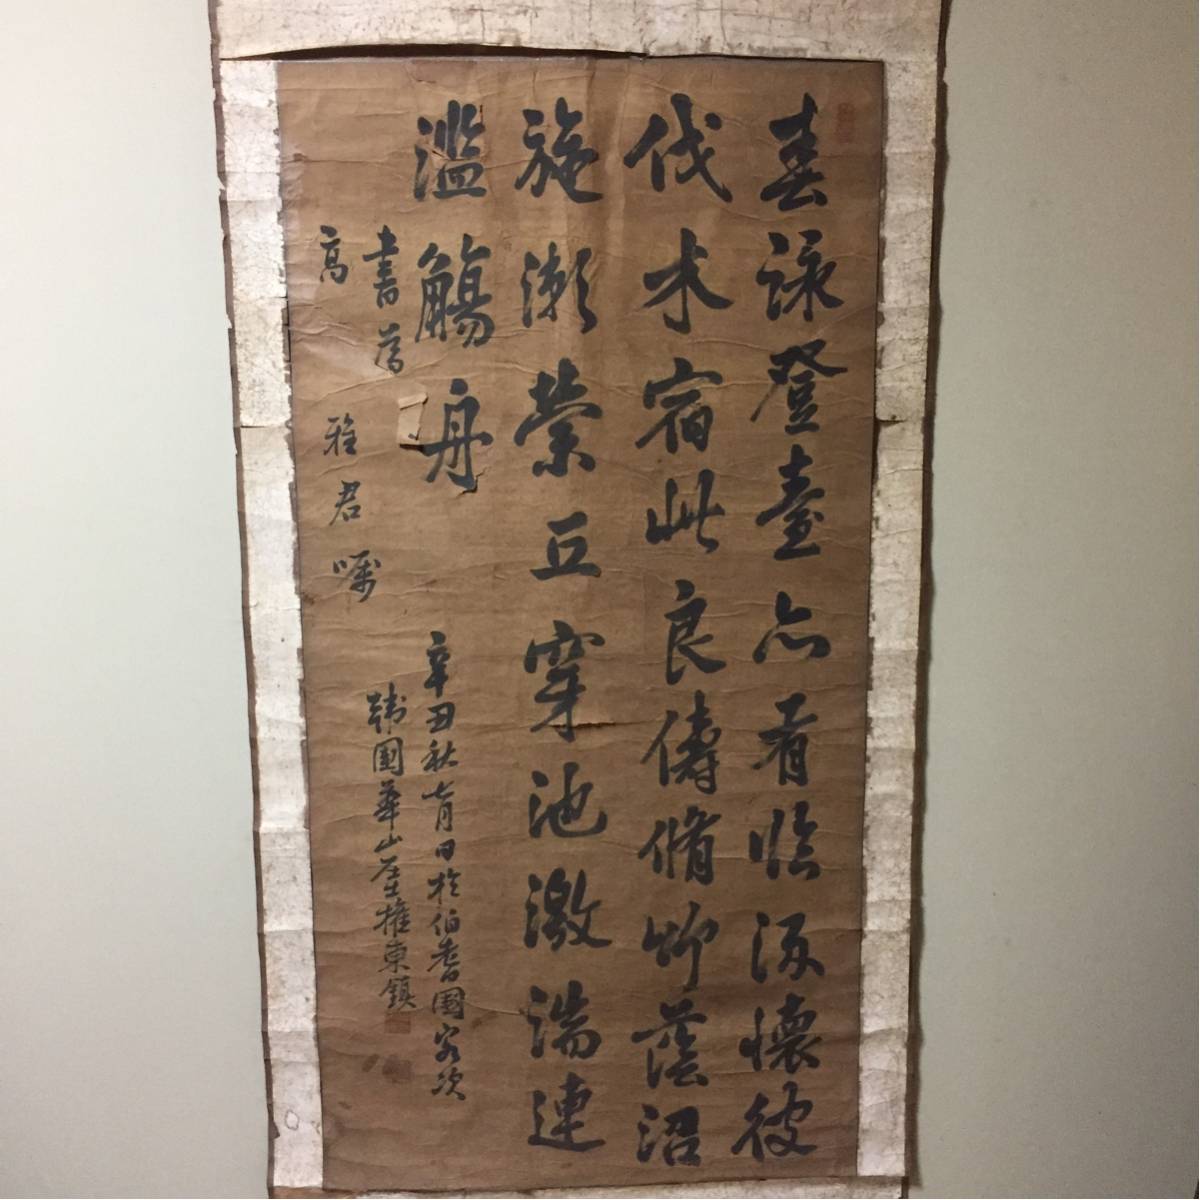 春詠登臺亦有臨流懷彼
伐木宿此良儔脩竹蔭沼
旋瀨縈丘穿池激湍連
濫觴舟
辛丑秋七月日於伯耆國客次
韓國華山 權東鎮
書為
高 雅君嘱